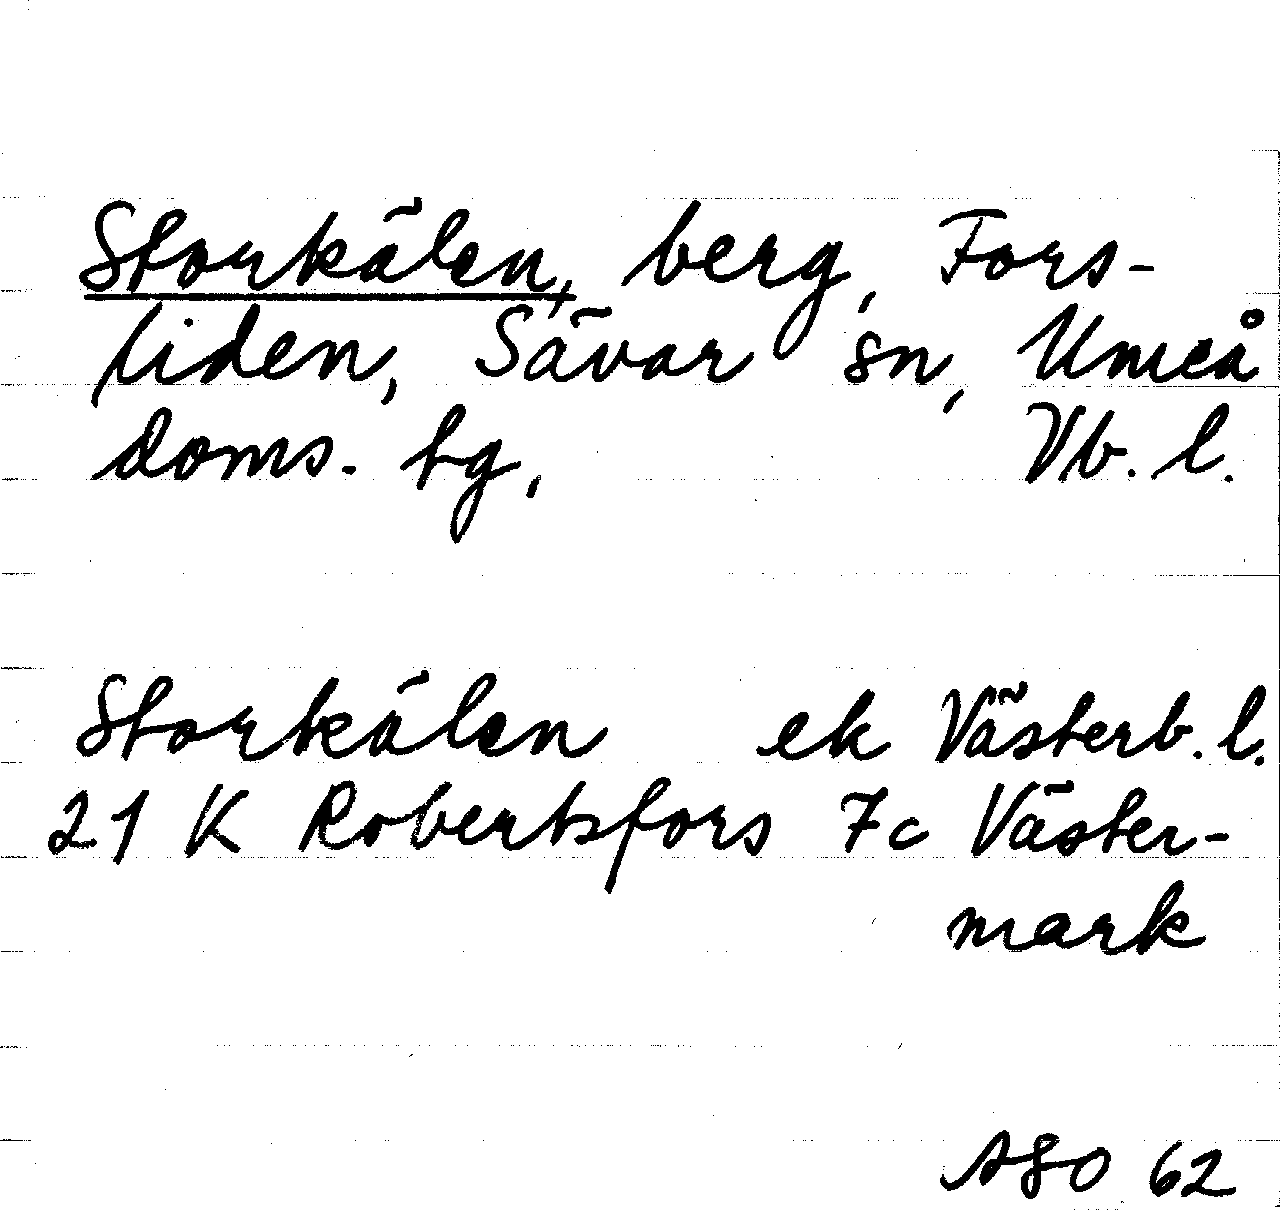 Storkälen, berg, Fors-
liden, Sävar sn, Umeå
doms. tg, Vb. l.
Storkälen ek Västerb. l.
21 K Robertsfors 7c Väster-
mark
ASO 62